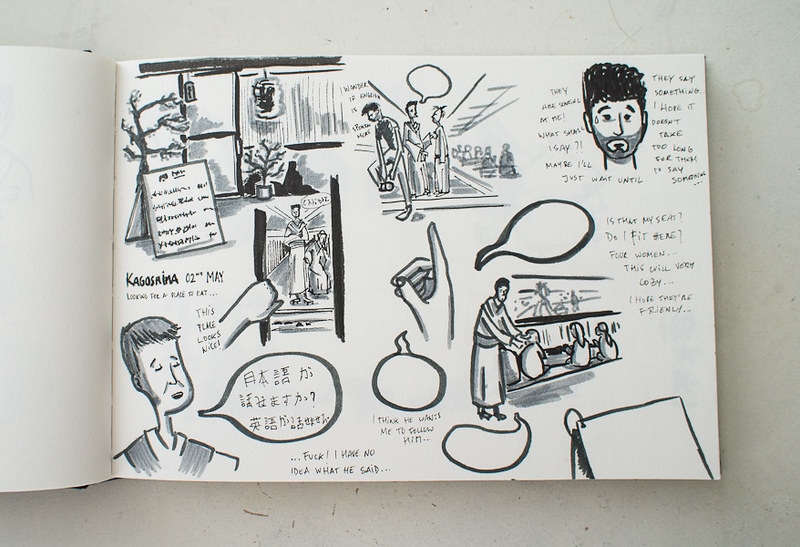 I WONDER
IF ENGLISH
SPOKEN
HERE
THEY
ARE STARING
AT ME!
WHAT SHALL
I SAY?!
MAYBE I'LL
JUST WAIT UNTIL
THEY SAY
SOMETHING...
I HOPE IT
DOESN'T
TAKE
TOO LONG
FOR THEM
TO SAY
SOMETHING...
KAGOSHIMA 02ND MAY
LOOKING FOR A PLACE TO EAT...
THIS
PLACE
LOOKS
NICE!
日本語が
話せますか?
英語が話せません
...FUCK! I HAVE NO
IDEA WHAT HE SAID...
I THINK HE WANTS
ME TO FOLLOW
HIM...
IS THAT MY SEAT?
DO I FIT HERE?
FOUR WOMEN...
THIS WILL VERY
COZY...
I HOPE THEY'RE
FRIENLY...